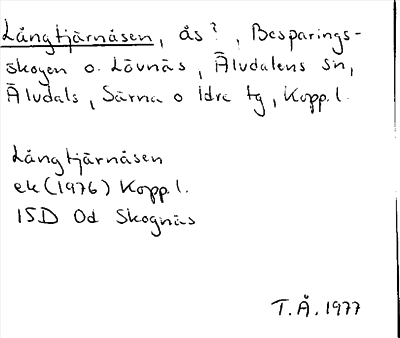 Långtjärnåsen, ås?, Besparings-
skogen o. Lövnäs, Äludalens sn,
Äludals, Särna o Idre tg, Kopp.l.
Långtjärnåsen
ek (1976) Kopp.l.
15D 0d Skognäs
T.Å. 1977